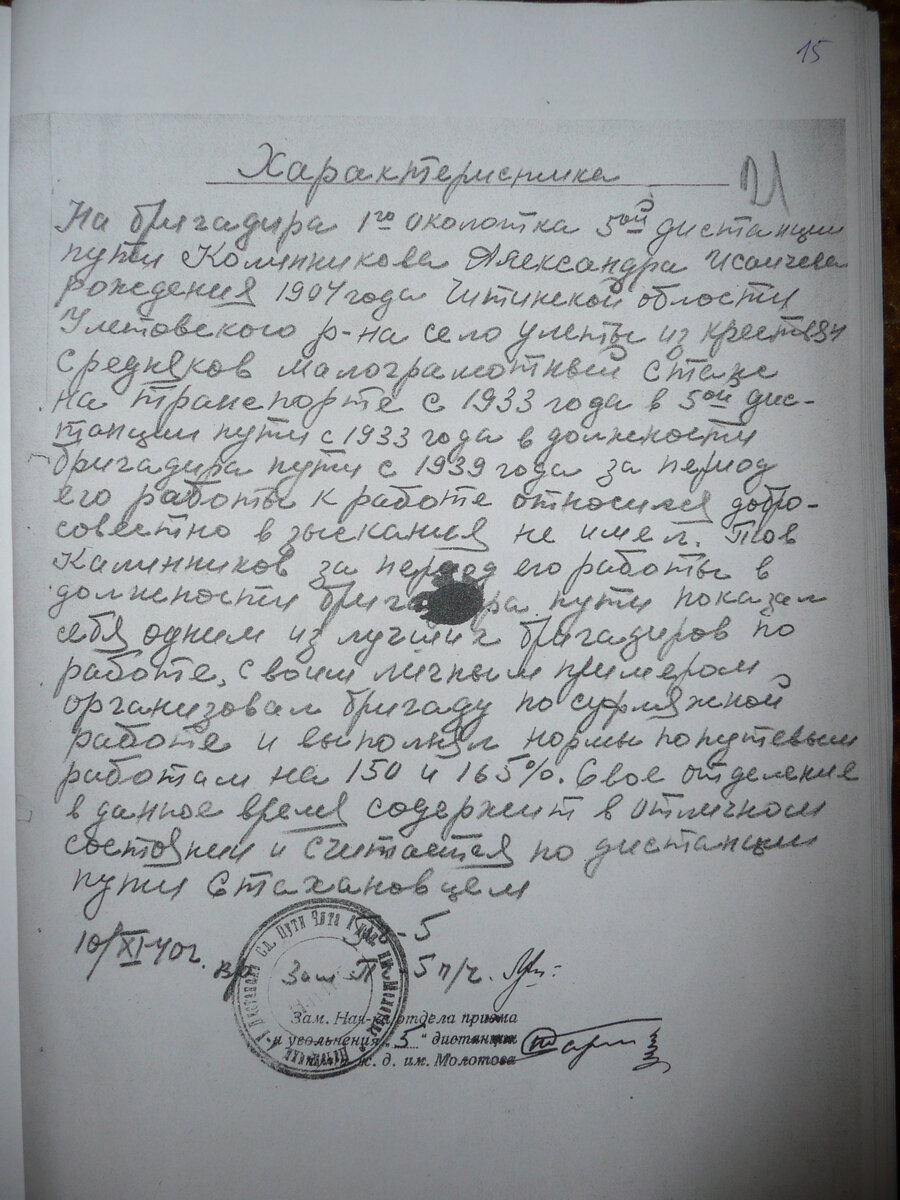 15
Характеристика
21
На бригадира 1го околотка 5ой дистанции
пути Калинникова Александра Исаичева
рождения 1904 года Читинской области
Улетовского р-на село улеты из крестьян
средняков малограмотный стаж
на транспорте с 1933 года в 5ой дис-
танции пути с 1933 года в должности
бригадира пути с 1939 года за период
его работы к работе относился добро-
совестно взыскания не имел. Тов
Калинников за период его работы в
должности бригадира пути показал
себя одним из лучших бригадиров по
работе, своим личным примером
организовал бригаду по
работе и выполнял нормы по путевым
работам на 150 и 165%. Свое отделение
в данное время содержит в отличном
состоянии и считается по дистанции
пути Стахановцем
10/XI-40г.
Зам. Нач-ка отдела приема
и увольнения „5" дистанции
ж. д. им. Молотова